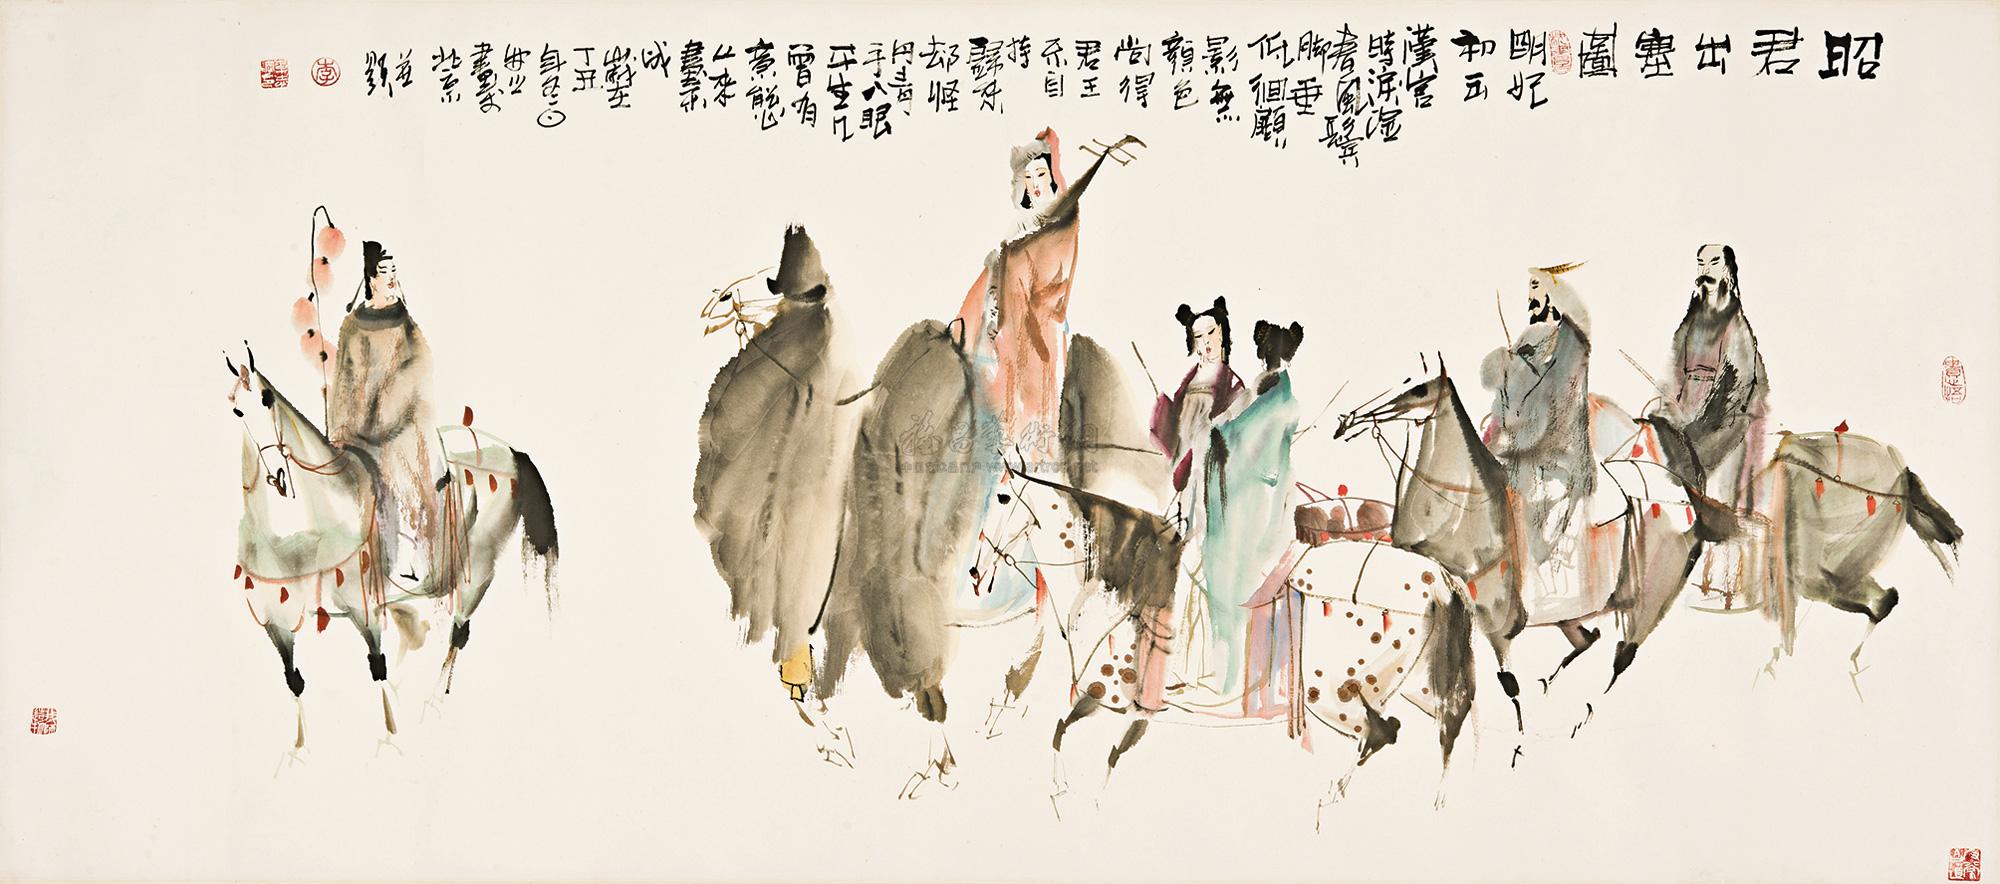 昭君出塞圖
明妃
初出
漢宮
時淚濕
春風鬢
脚垂
低徊顧
影無
顏色
尚得
君王
不自
持
歸來
却怪
丹青
手入眼
平生几
曾有
意態
由來
畫不
成
歲在
丁丑
畫於
北京
並
題
李